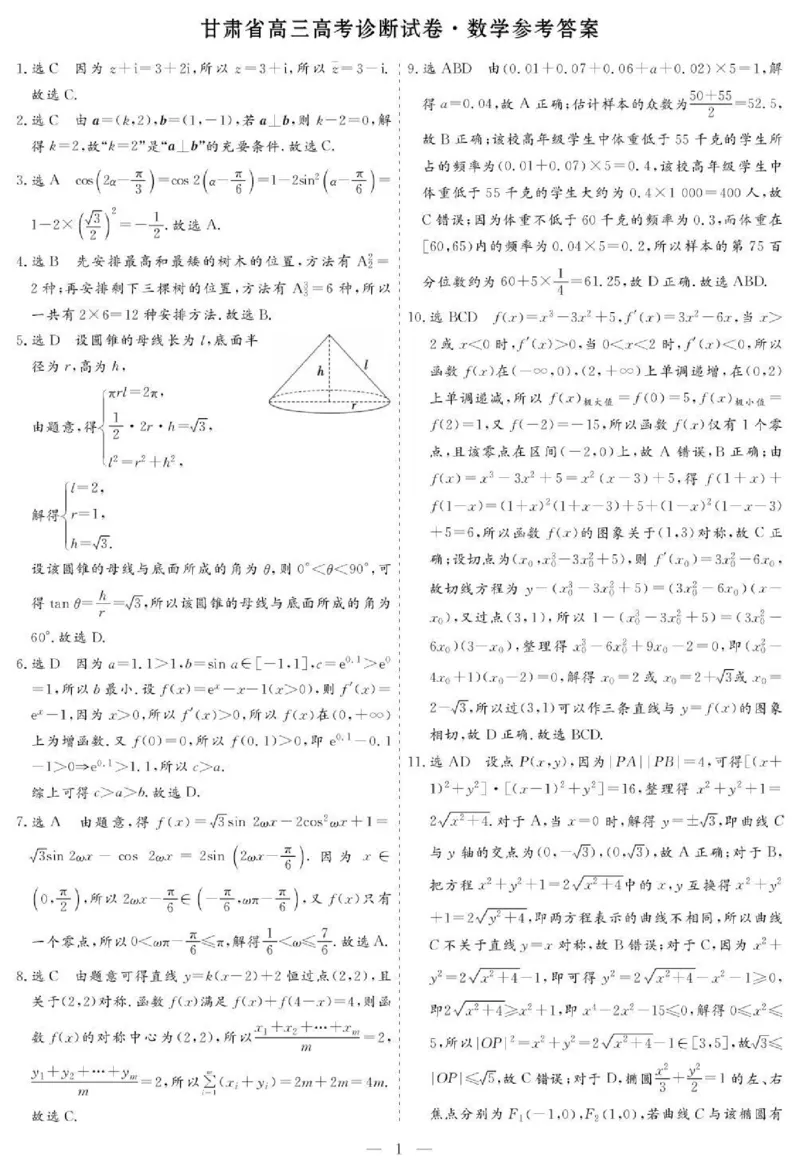 甘肃省高三高考诊断试卷·数学参考答案
1. 选 C　因为 z+i=3+2i,所以 z=3+i,所以 z̄=3-i.
故选 C.
2. 选 C　由 a=(k,2),b=(1,-1),若 a⊥b,则 k-2=0,解
得 k=2,故“k=2”是“a⊥b”的充要条件.故选 C.
3. 选 A　cos(2α-π/3)=cos 2(α-π/6)=1-2sin²(α-π/6)=
1-2×(√3/2)²=-1/2.故选 A.
4. 选 B　先安排最高和最矮的树木的位置,方法有 A₂²=
2 种;再安排剩下三棵树的位置,方法有 A₃³=6 种,所以
一共有 2×6=12 种安排方法.故选 B.
5. 选 D　设圆锥的母线长为 l,底面半
径为 r,高为 h,
h l r
由题意,得{πrl=2π,
1/2·2r·h=√3,
l²=r²+h²,
解得{l=2,
r=1,
h=√3.
设该圆锥的母线与底面所成的角为 θ,则 0°<θ<90°,可
得 tan θ=h/r=√3,所以该圆锥的母线与底面所成的角为
60°.故选 D.
6. 选 D　因为 a=1.1>1,b=sin a∈[-1,1],c=e^0.1>e^0
=1,所以 b 最小.设 f(x)=e^x-x-1(x>0),则 f′(x)=
e^x-1,因为 x>0,所以 f′(x)>0,所以 f(x)在(0,+∞)
上为增函数.又 f(0)=0,所以 f(0.1)>0,即 e^0.1-0.1
-1>0⇒e^0.1>1.1,所以 c>a.
综上可得 c>a>b.故选 D.
7. 选 A　由题意,得 f(x)=√3sin 2ωx-2cos²ωx+1=
√3sin 2ωx - cos 2ωx = 2sin(2ωx-π/6). 因为 x∈
(0,π/2),所以 2ωx-π/6∈(-π/6,ωπ-π/6),又 f(x)只有
一个零点,所以 0<ωπ-π/6≤π,解得 1/6<ω≤7/6.故选 A.
8. 选 C　由题意可得直线 y=k(x-2)+2 恒过点(2,2),且
关于(2,2)对称.函数 f(x)满足 f(x)+f(4-x)=4,则函
数 f(x)的对称中心为(2,2),所以 (x₁+x₂+⋯+xₘ)/m=2,
(y₁+y₂+⋯+yₘ)/m=2,所以 ∑_{i=1}^{m}(xᵢ+yᵢ)=2m+2m=4m.
故选 C.
9. 选 ABD　由(0.01+0.07+0.06+a+0.02)×5=1,解
得 a=0.04,故 A 正确;估计样本的众数为(50+55)/2=52.5,
故 B 正确;该校高年级学生中体重低于 55 千克的学生所
占的频率为(0.01+0.07)×5=0.4,该校高年级学生中
体重低于 55 千克的学生大约为 0.4×1 000=400 人,故
C 错误;因为体重不低于 60 千克的频率为 0.3,而体重在
[60,65)内的频率为 0.04×5=0.2,所以样本的第 75 百
分位数约为 60+5×1/4=61.25,故 D 正确.故选 ABD.
10. 选 BCD　f(x)=x³-3x²+5,f′(x)=3x²-6x,当 x>
2 或 x<0 时,f′(x)>0,当 0<x<2 时,f′(x)<0,所以
函数 f(x)在(-∞,0),(2,+∞)上单调递增,在(0,2)
上单调递减,所以 f(x)极大值=f(0)=5,f(x)极小值=
f(2)=1,又 f(-2)=-15,所以函数 f(x)仅有 1 个零
点,且该零点在区间(-2,0)上,故 A 错误,B 正确;由
f(x)=x³-3x²+5=x²(x-3)+5,得 f(1+x)+
f(1-x)=(1+x)²(1+x-3)+5+(1-x)²(1-x-3)
+5=6,所以函数 f(x)的图象关于(1,3)对称,故 C 正
确;设切点为(x₀,x₀³-3x₀²+5),则 f′(x₀)=3x₀²-6x₀,
故切线方程为 y-(x₀³-3x₀²+5)=(3x₀²-6x₀)(x-
x₀),又过点(3,1),所以 1-(x₀³-3x₀²+5)=(3x₀²-
6x₀)(3-x₀),整理得 x₀³-6x₀²+9x₀-2=0,即(x₀²-
4x₀+1)(x₀-2)=0,解得 x₀=2 或 x₀=2+√3或 x₀=
2-√3,所以过(3,1)可以作三条直线与 y=f(x)的图象
相切,故 D 正确.故选 BCD.
11. 选 AD　设点 P(x,y),因为|PA||PB|=4,可得[(x+
1)²+y²]·[(x-1)²+y²]=16,整理得 x²+y²+1=
2√(x²+4).对于 A,当 x=0 时,解得 y=±√3,即曲线 C
与 y 轴的交点为(0,-√3),(0,√3),故 A 正确;对于 B,
把方程 x²+y²+1=2√(x²+4)中的 x,y 互换得 x²+y²
+1=2√(y²+4),即两方程表示的曲线不相同,所以曲线
C 不关于直线 y=x 对称,故 B 错误;对于 C,因为 x²+
y²=2√(x²+4)-1,即可得 y²=2√(x²+4)-x²-1≥0,
即2√(x²+4)≥x²+1,即 x⁴-2x²-15≤0,解得 0≤x²≤
5,所以|OP|²=x²+y²=2√(x²+4)-1∈[3,5],故√3≤
|OP|≤√5,故 C 错误;对于 D,椭圆 x²/3+y²/2=1 的左、右
焦点分别为 F₁(-1,0),F₂(1,0),若曲线 C 与该椭圆有
— 1 —